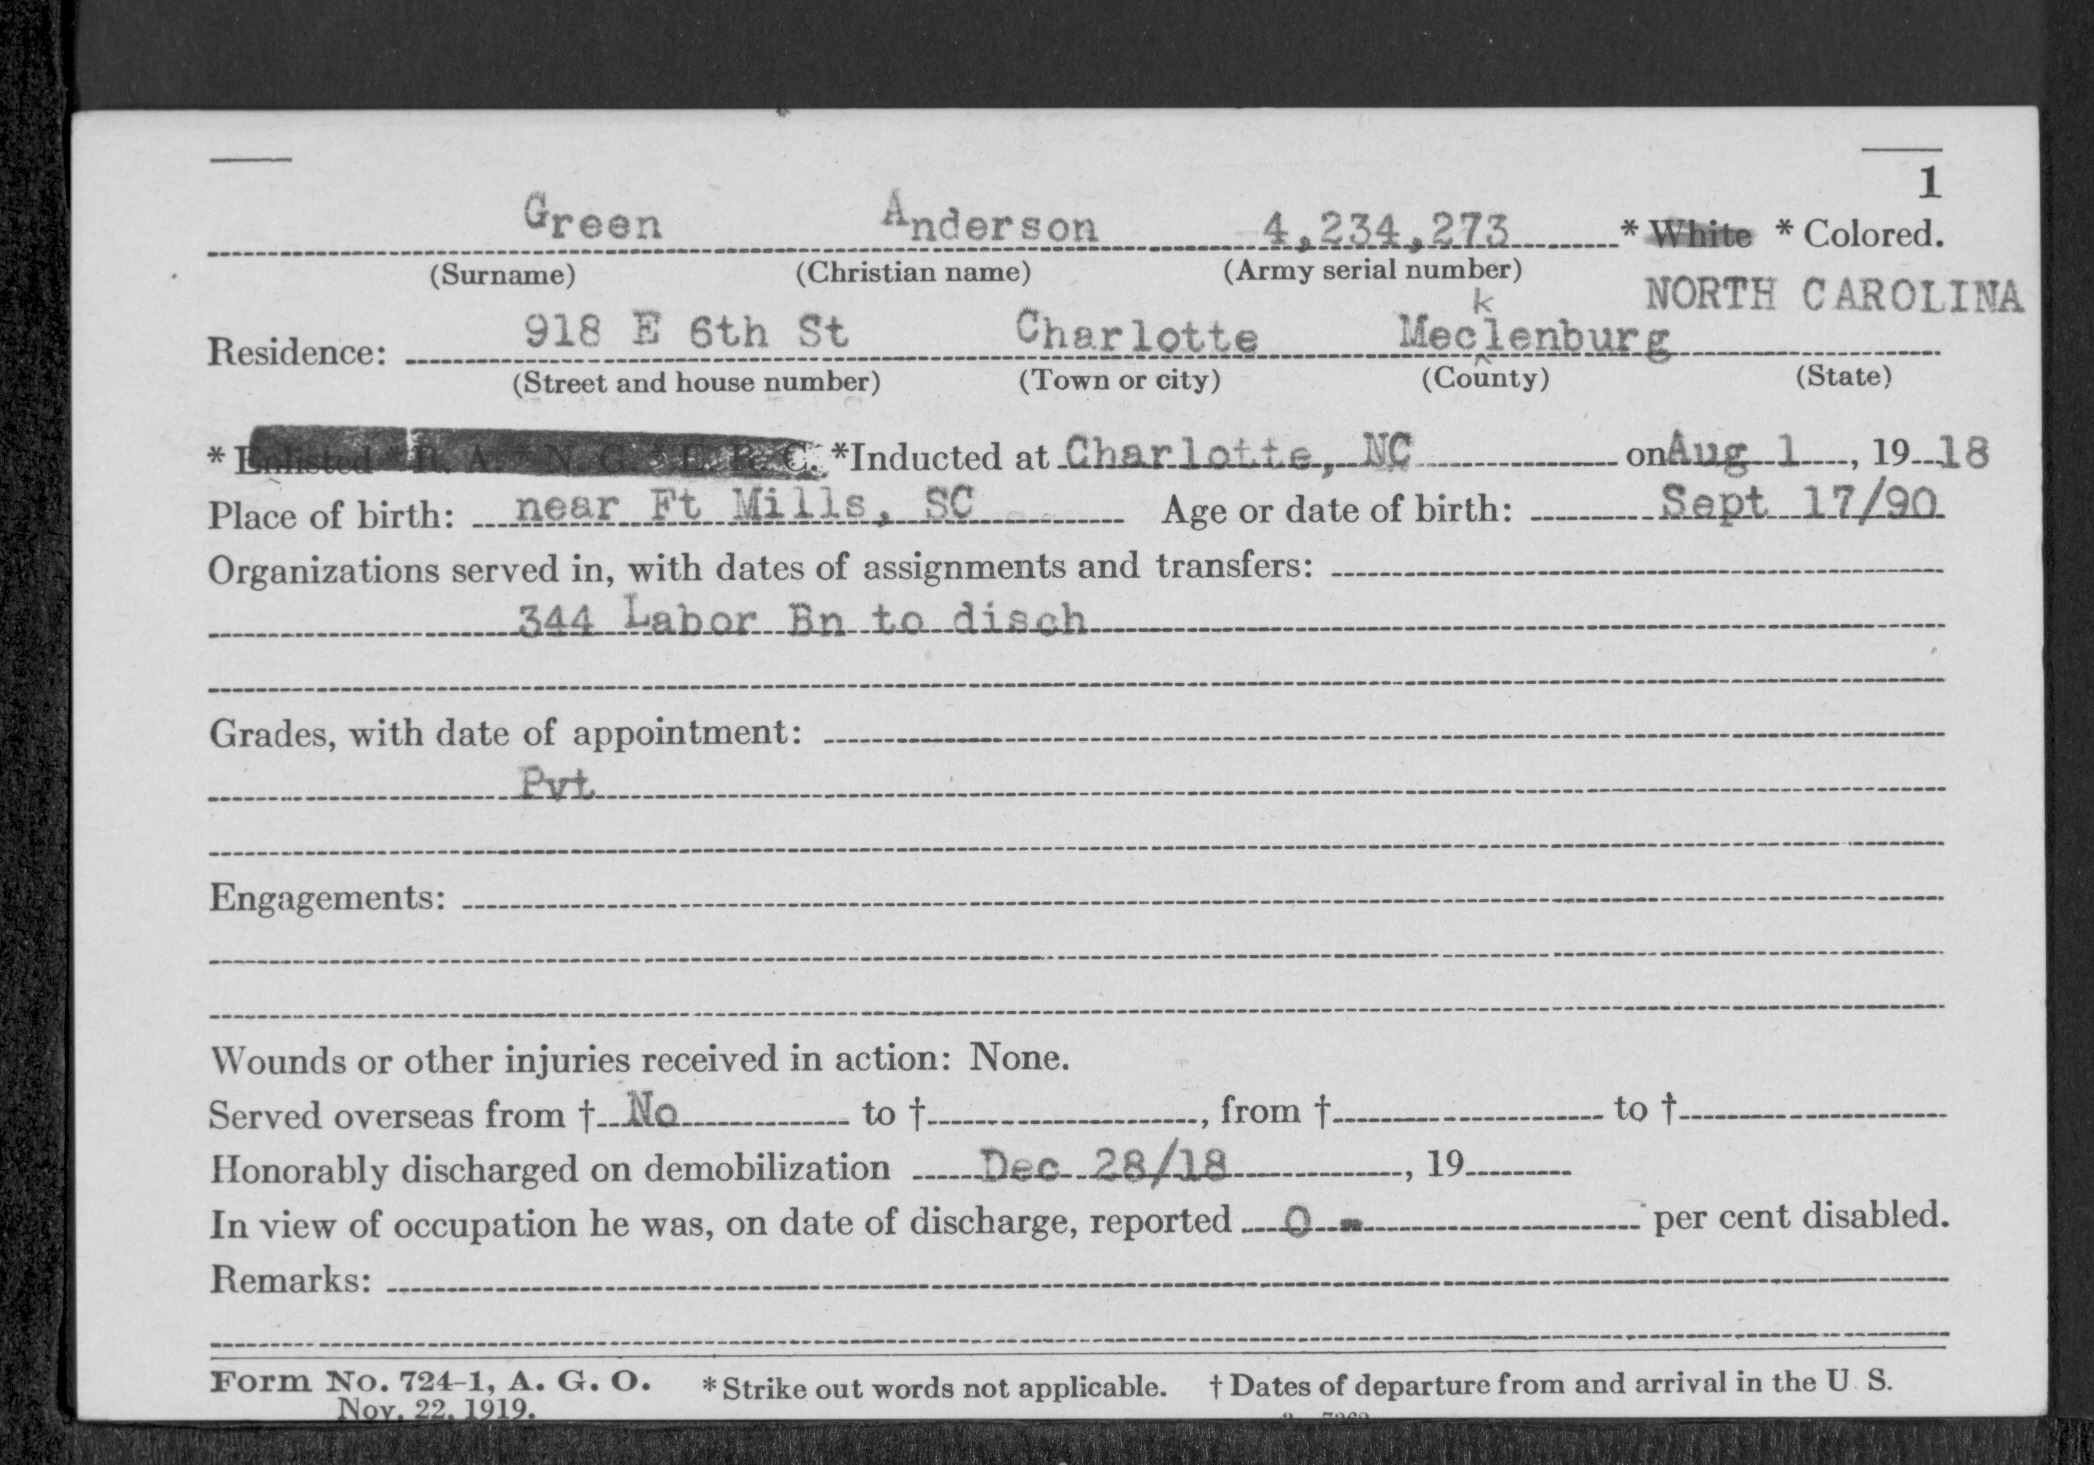 1
Green Anderson 4,234,273 * White * Colored.
(Surname) (Christian name) (Army serial number)
NORTH CAROLINA
k
Residence: 918 E 6th St Charlotte Mec^lenburg
(Street and house number) (Town or city) (County) (State)
* Enlisted * R. A. * N. G. * E. R. C. *Inducted at Charlotte, NC on Aug 1, 19 18
Place of birth: near Ft Mills, SC Age or date of birth: Sept 17/90
Organizations served in, with dates of assignments and transfers:
344 Labor Bn to disch
Grades, with date of appointment:
Pvt
Engagements:
Wounds or other injuries received in action: None.
Served overseas from † No to †, from † to †
Honorably discharged on demobilization Dec 28/18, 19
In view of occupation he was, on date of discharge, reported 0 - per cent disabled.
Remarks:
Form No. 724-1, A. G. O. * Strike out words not applicable. † Dates of departure from and arrival in the U. S.
Nov. 22, 1919.